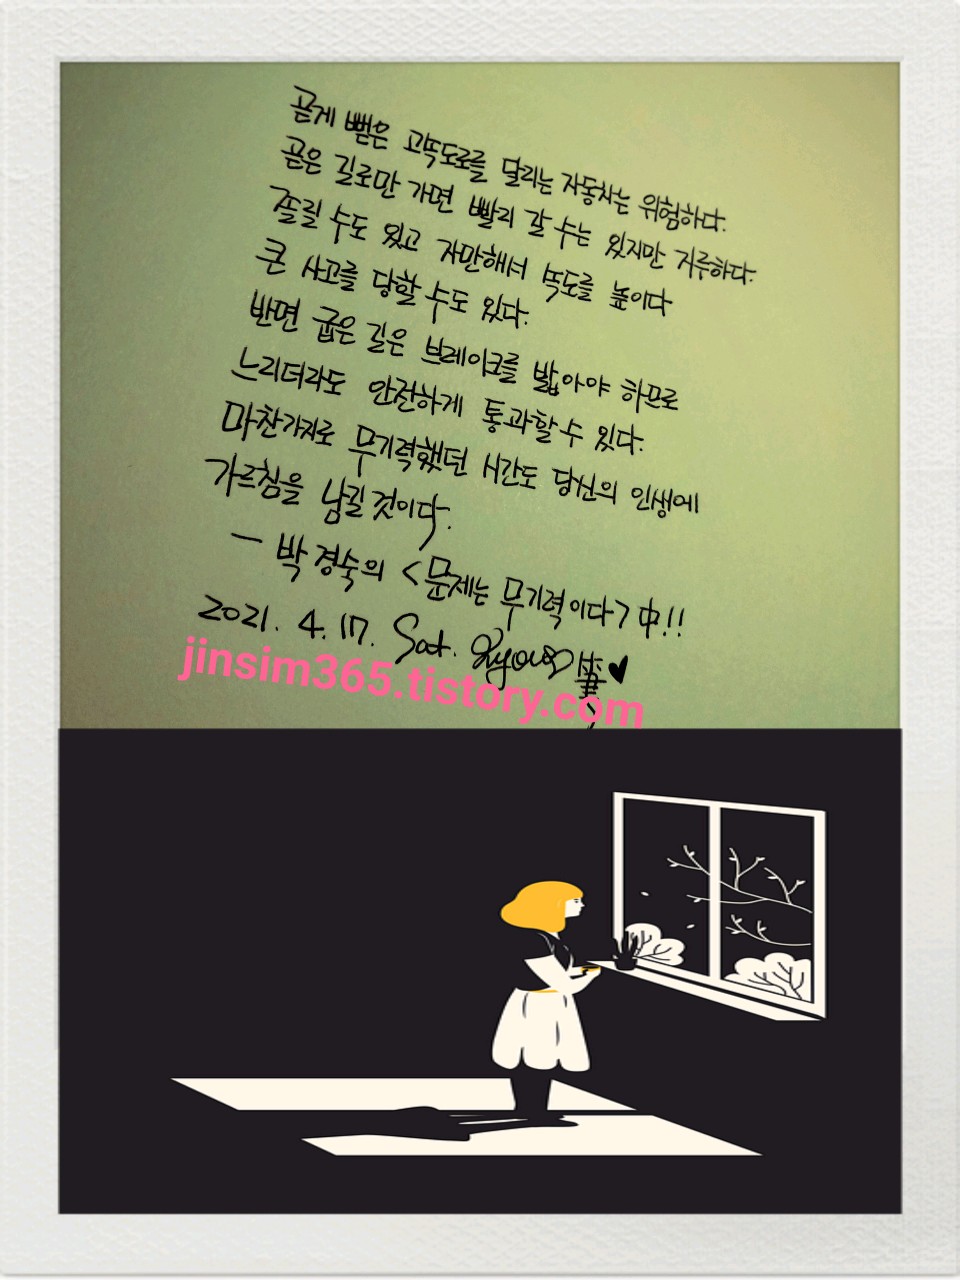 곧게 뻗은 고속도로를 달리는 자동차는 위험하다.
곧은 길로만 가면 빨리 갈 수는 있지만 지루하다.
졸릴 수도 있고 자만해서 속도를 높이다
큰 사고를 당할 수도 있다.
반면 굽은 길은 브레이크를 밟아야 하므로
느리더라도 안전하게 통과할 수 있다.
마찬가지로 무기력했던 시간도 당신의 인생에
가르침을 남길 것이다.
- 박경숙의 <문제는 무기력이다> 中!!
2021. 4. 17. Sat.
jinsim365.tistory.com